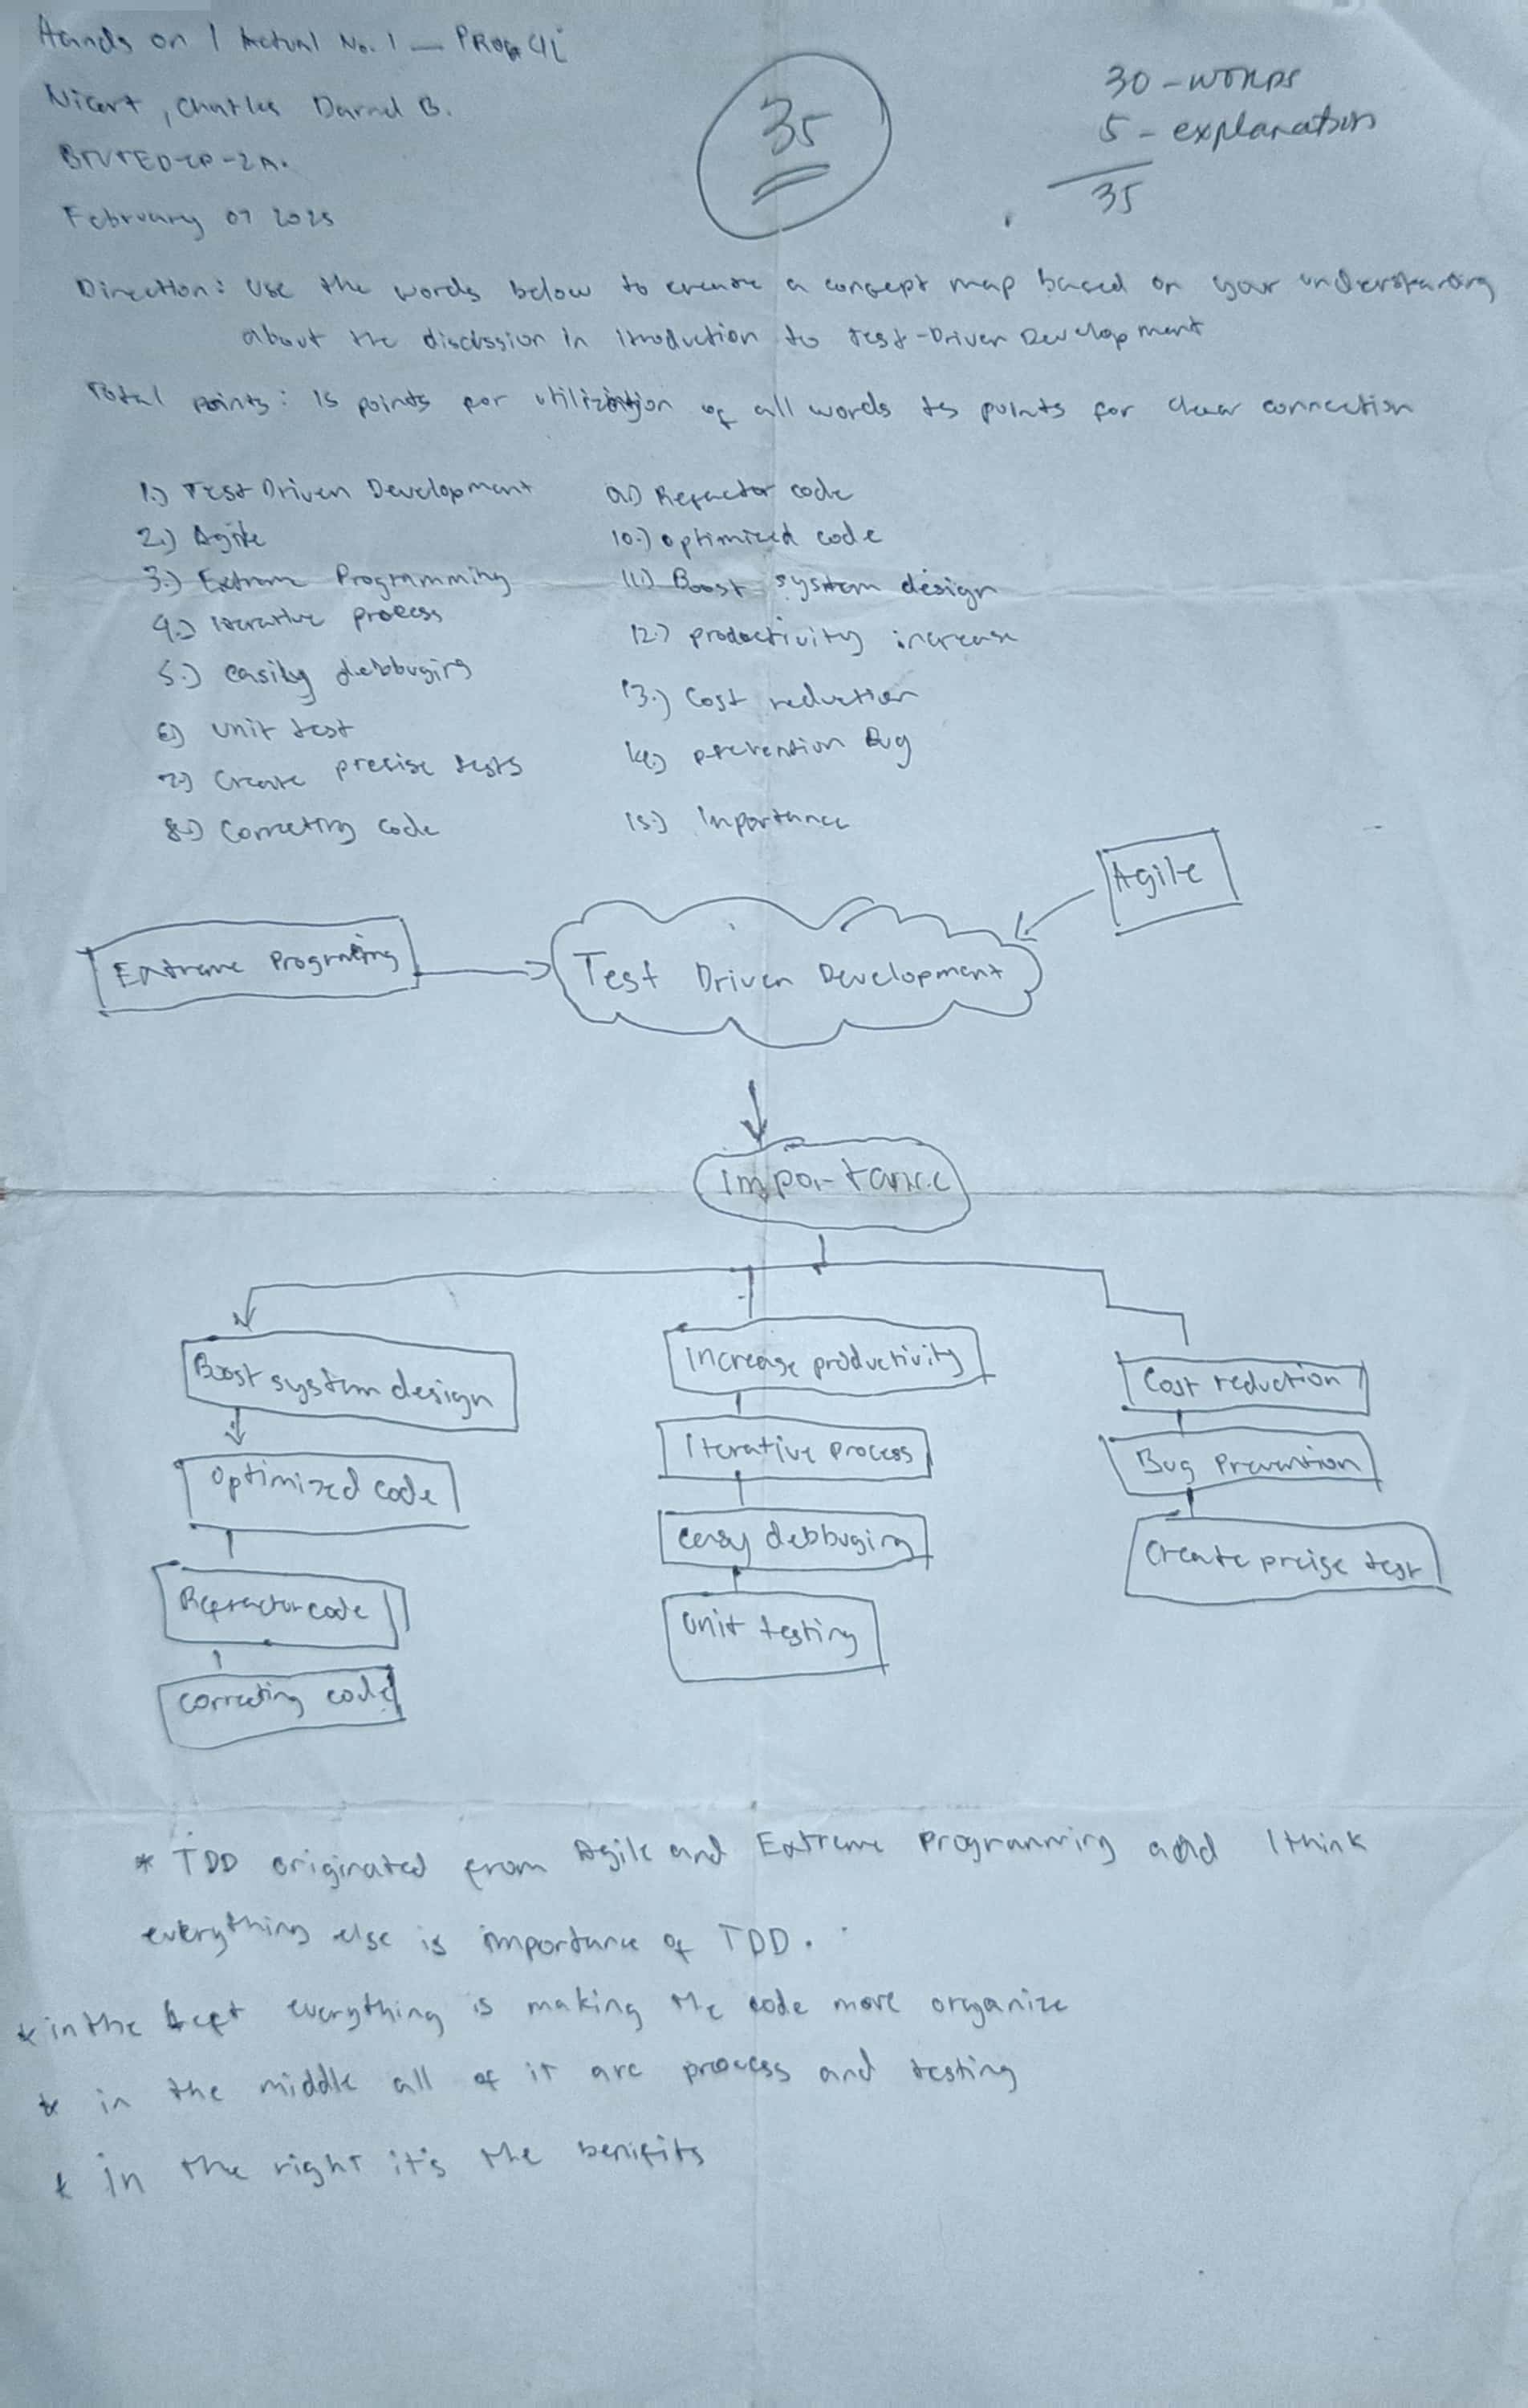 Hands on 1 Actual No. 1 —
35
30 - words
5 - explanation
35
Charles Darnel B.
February 07 2025
Direction: Use the words below to create a concept map based on your understanding
about the discussion in Itroduction to Test-Driven Development
Total points: 15 points for of all words 15 points for clear connection
1.) Test Driven Development
2.) Agile
3.) Extreme Programming
4.) Iterative process
5.) easily debbuging
6) unit test
7) Create precise tests
8.) Correcting code
9.) Refactor code
10.) optimized code
11.) Boost system design
12.) productivity increase
13.) Cost reduction
14.) prevention Bug
15.) Importance
Agile
Extreme Programing
Test Driven Development
Importance
Boost system design
Increase productivity
Cost reduction
Optimized code
Iterative process
Bug Prevention
Refractor code
easy debbuging
Create precise test
Correcting code
Unit testing
* TDD originated from Agile and Extreme Programming and I think
everything else is importance of TDD.
* in the left everything is making the code more organize
* in the middle all of it are process and testing
* in the right it's the benifits